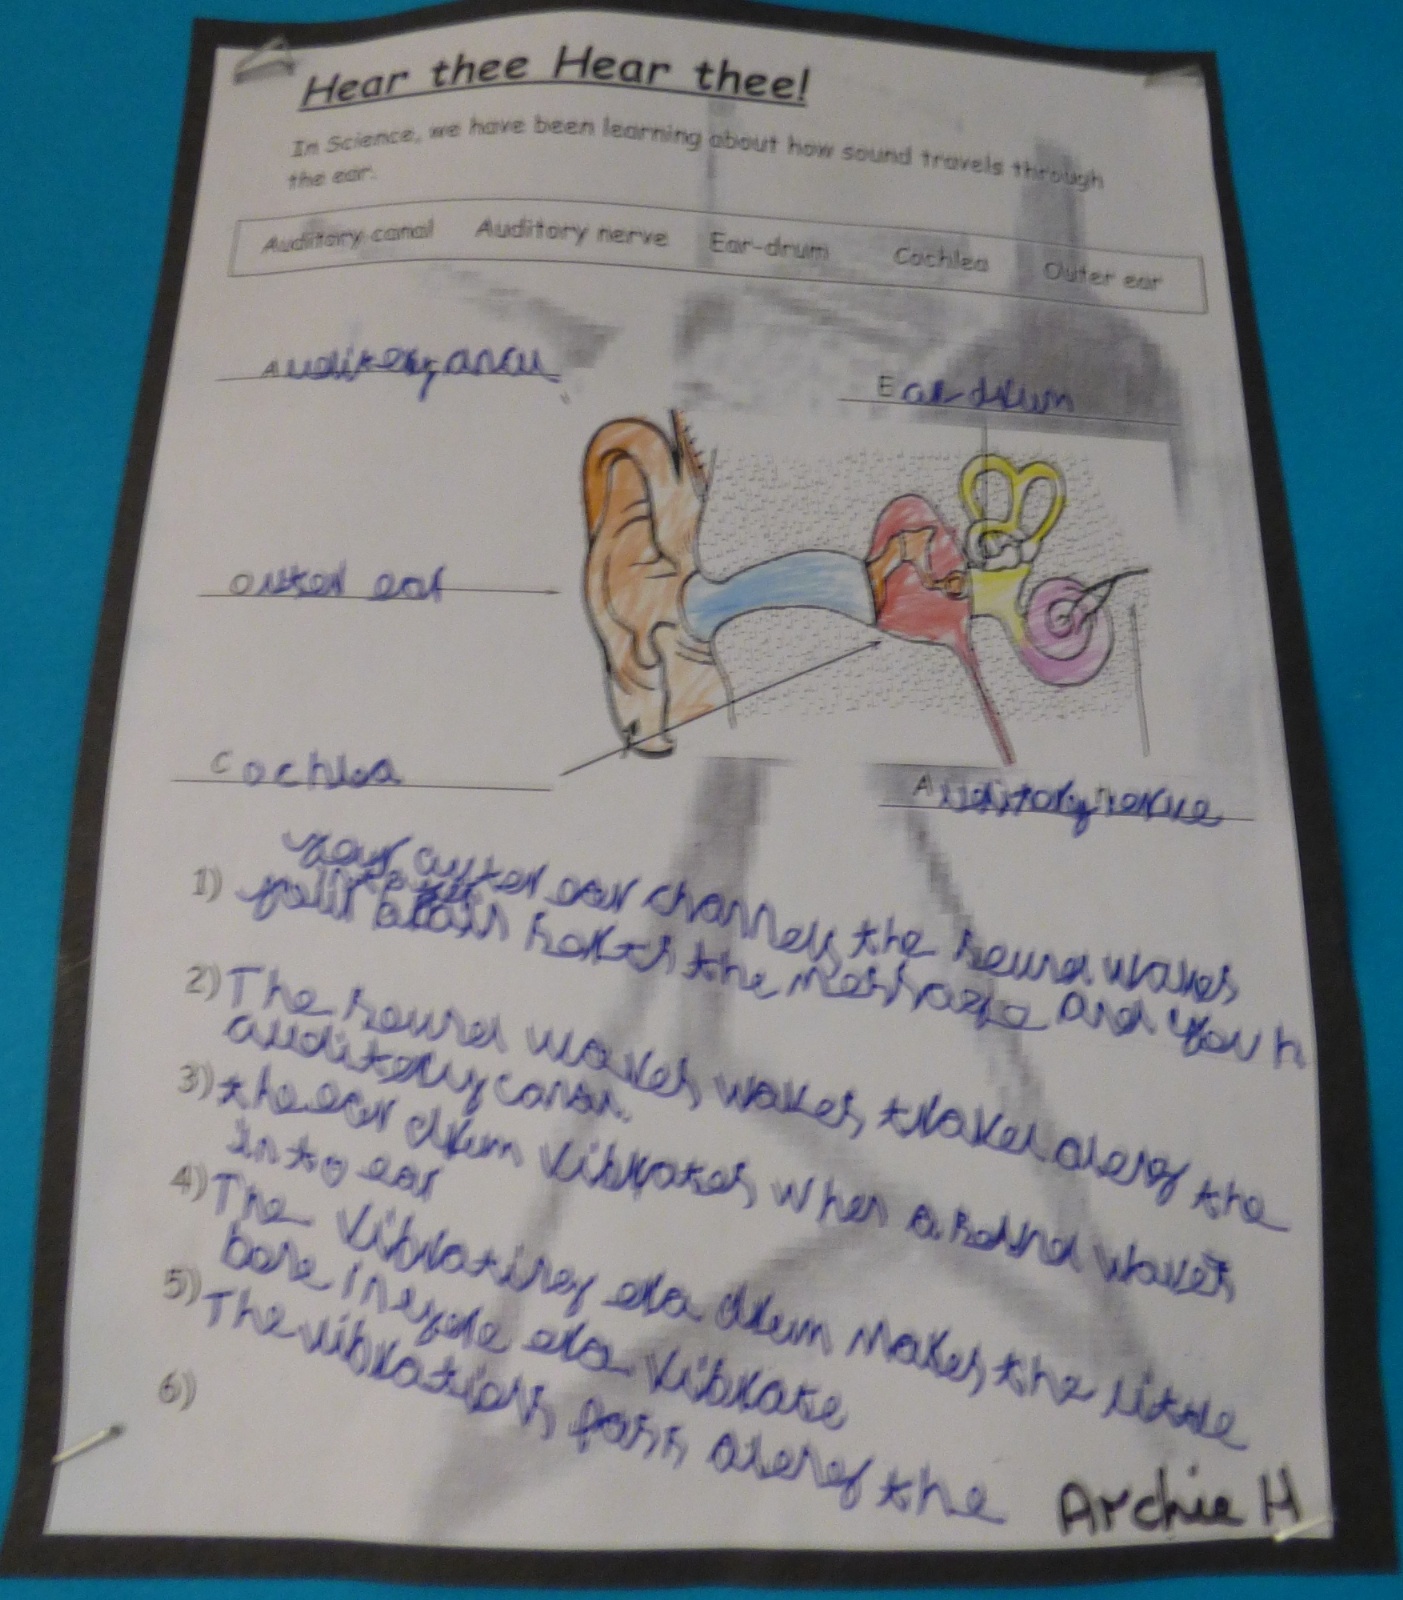 Hear thee Hear thee!
In Science, we have been learning about how sound travels through
the ear.
Auditory canal Auditory nerve Ear-drum Cochlea Outer ear
Ear drum
outer ear
Cochlea
Auditory nerve
1) your outer ear channels the sound waves
your brain sorts the message and you h
2) The sound waves waves travel along the
auditory canal.
3) the ear drum vibrates when a sound waves
into ear
4) The vibrating era drum makes the little
bone inside era vibrate
5) The vibrations pass along the
6)
Archie H